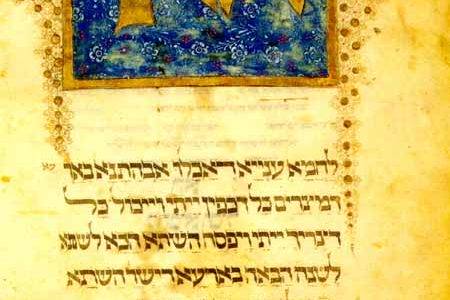 לחמא ענייא די אכלו אבהתנא באר
דמצרים כל דכפין ייתי וייכול כל
דצריך ייתי ויפסח השתא הכא לשתא
לשנה הבאה בארעא דישר השתא